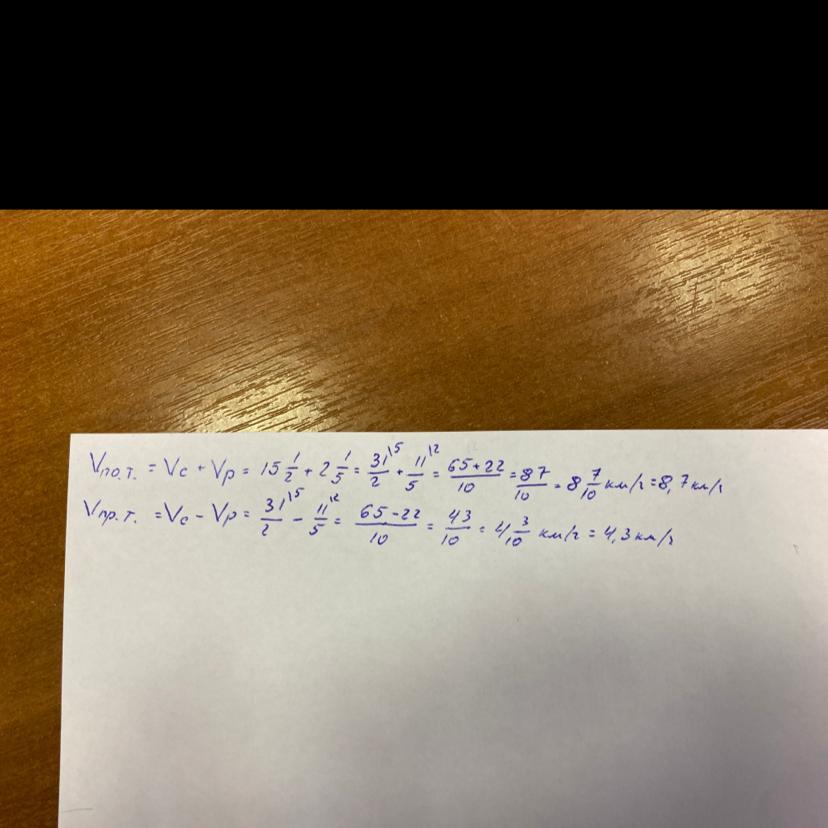 Vпо.т. = Vc + Vp = 15 1/2 + 2 1/5 = 31/2 ⁾⁵ + 11/5 ⁾² = 65+22/10 = 87/10 = 8 7/10 км/ч = 8,7 км/ч
Vпр.т. = Vc - Vp = 31/2 ⁾⁵ - 11/5 ⁾² = 65-22/10 = 43/10 = 4 3/10 км/ч = 4,3 км/ч